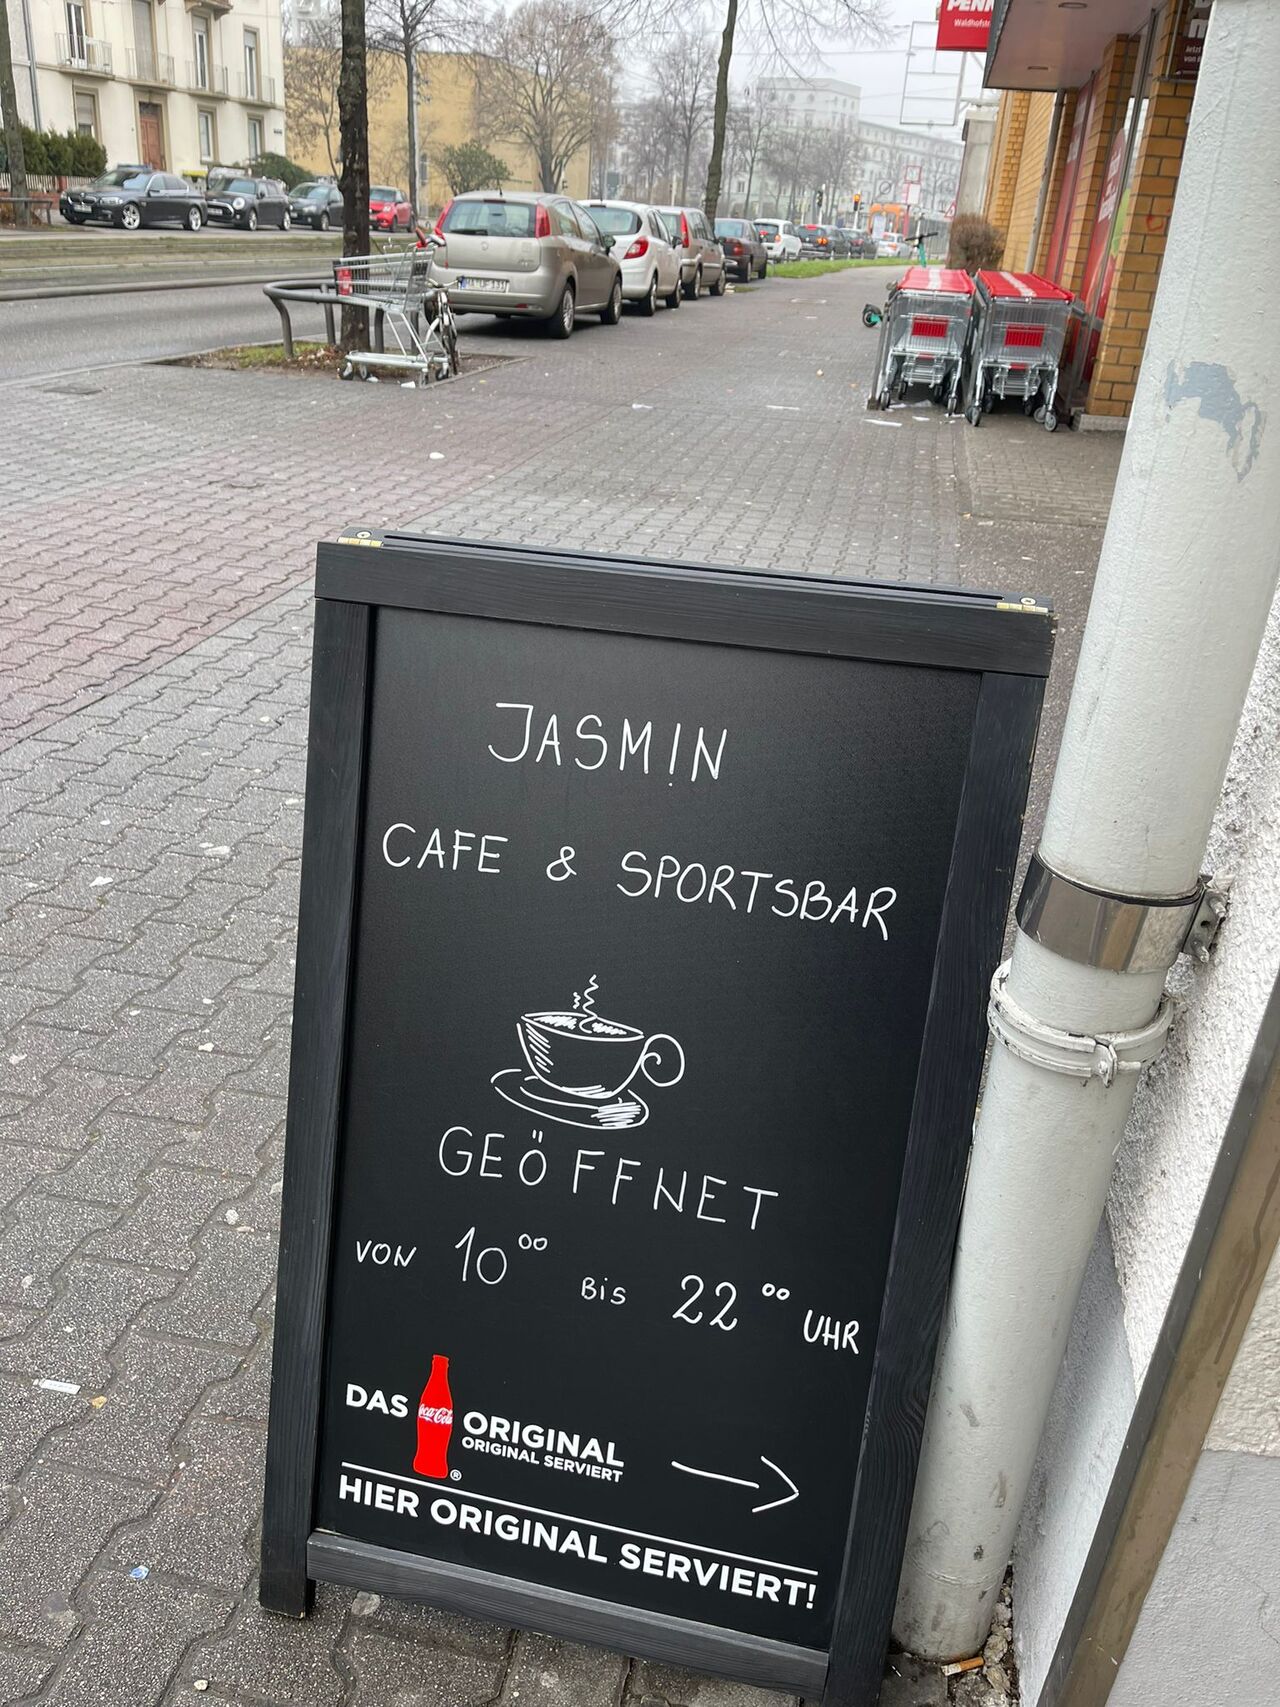 PENN
Waldhofstr
JASMIN
CAFE & SPORTSBAR
GEÖFFNET
VON 10⁰⁰ BIS 22⁰⁰ UHR
DAS Coca-Cola ORIGINAL
ORIGINAL SERVIERT
®
HIER ORIGINAL SERVIERT!